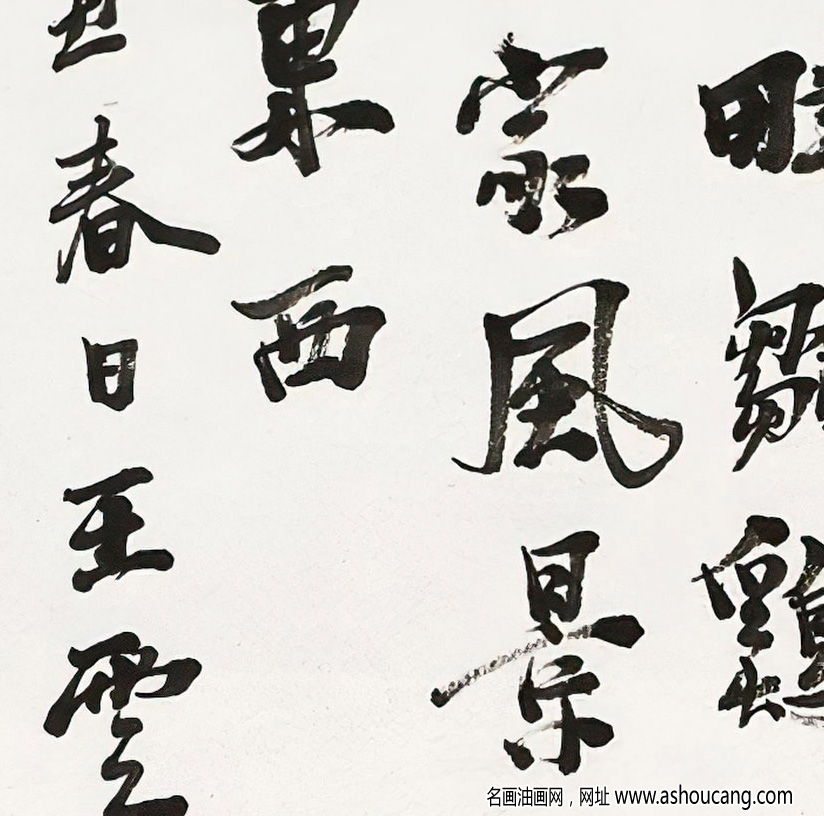 家風景
東西
丑春日王雲
名画油画网，网址 www.ashoucang.com